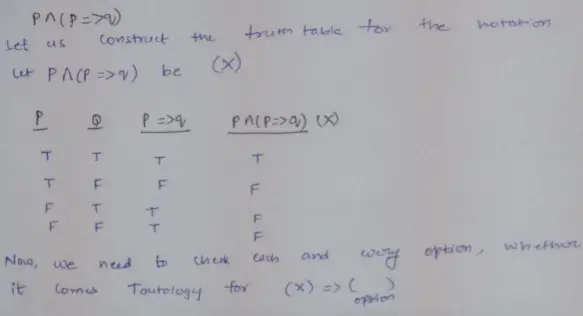 P∧(P=>q)
Let us construct the truth table for the notation
Let P∧(P=>q) be (X)
P Q P=>q P∧(P=>q) (X)
T T T T
T F F F
F T T F
F F T F
Now, we need to check each and every option, whether
it comes Toutology for (X) => ( )
option